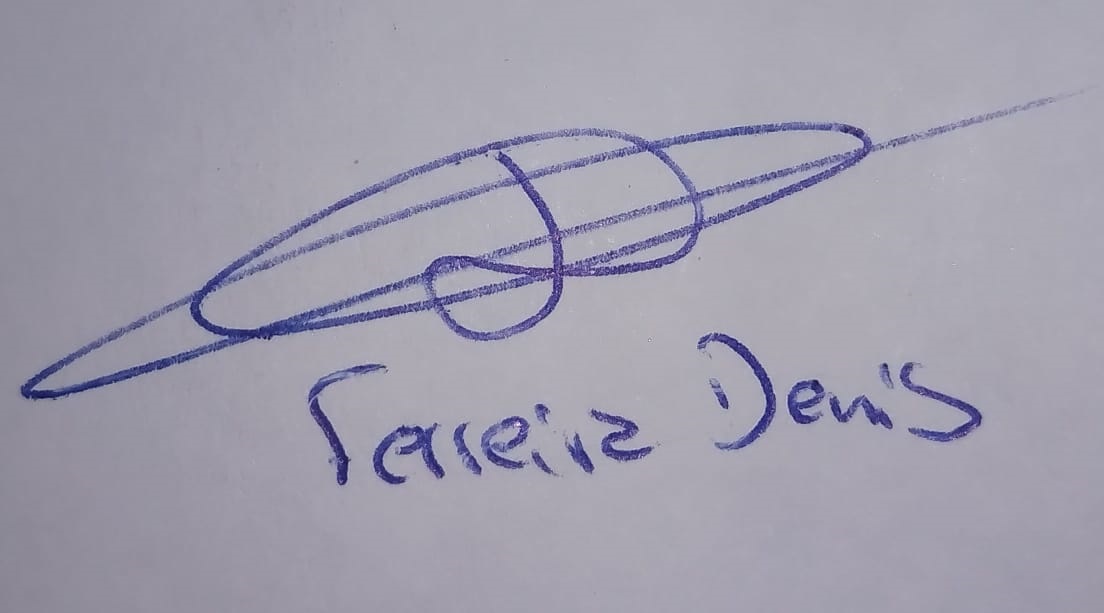 Ferreira Denis